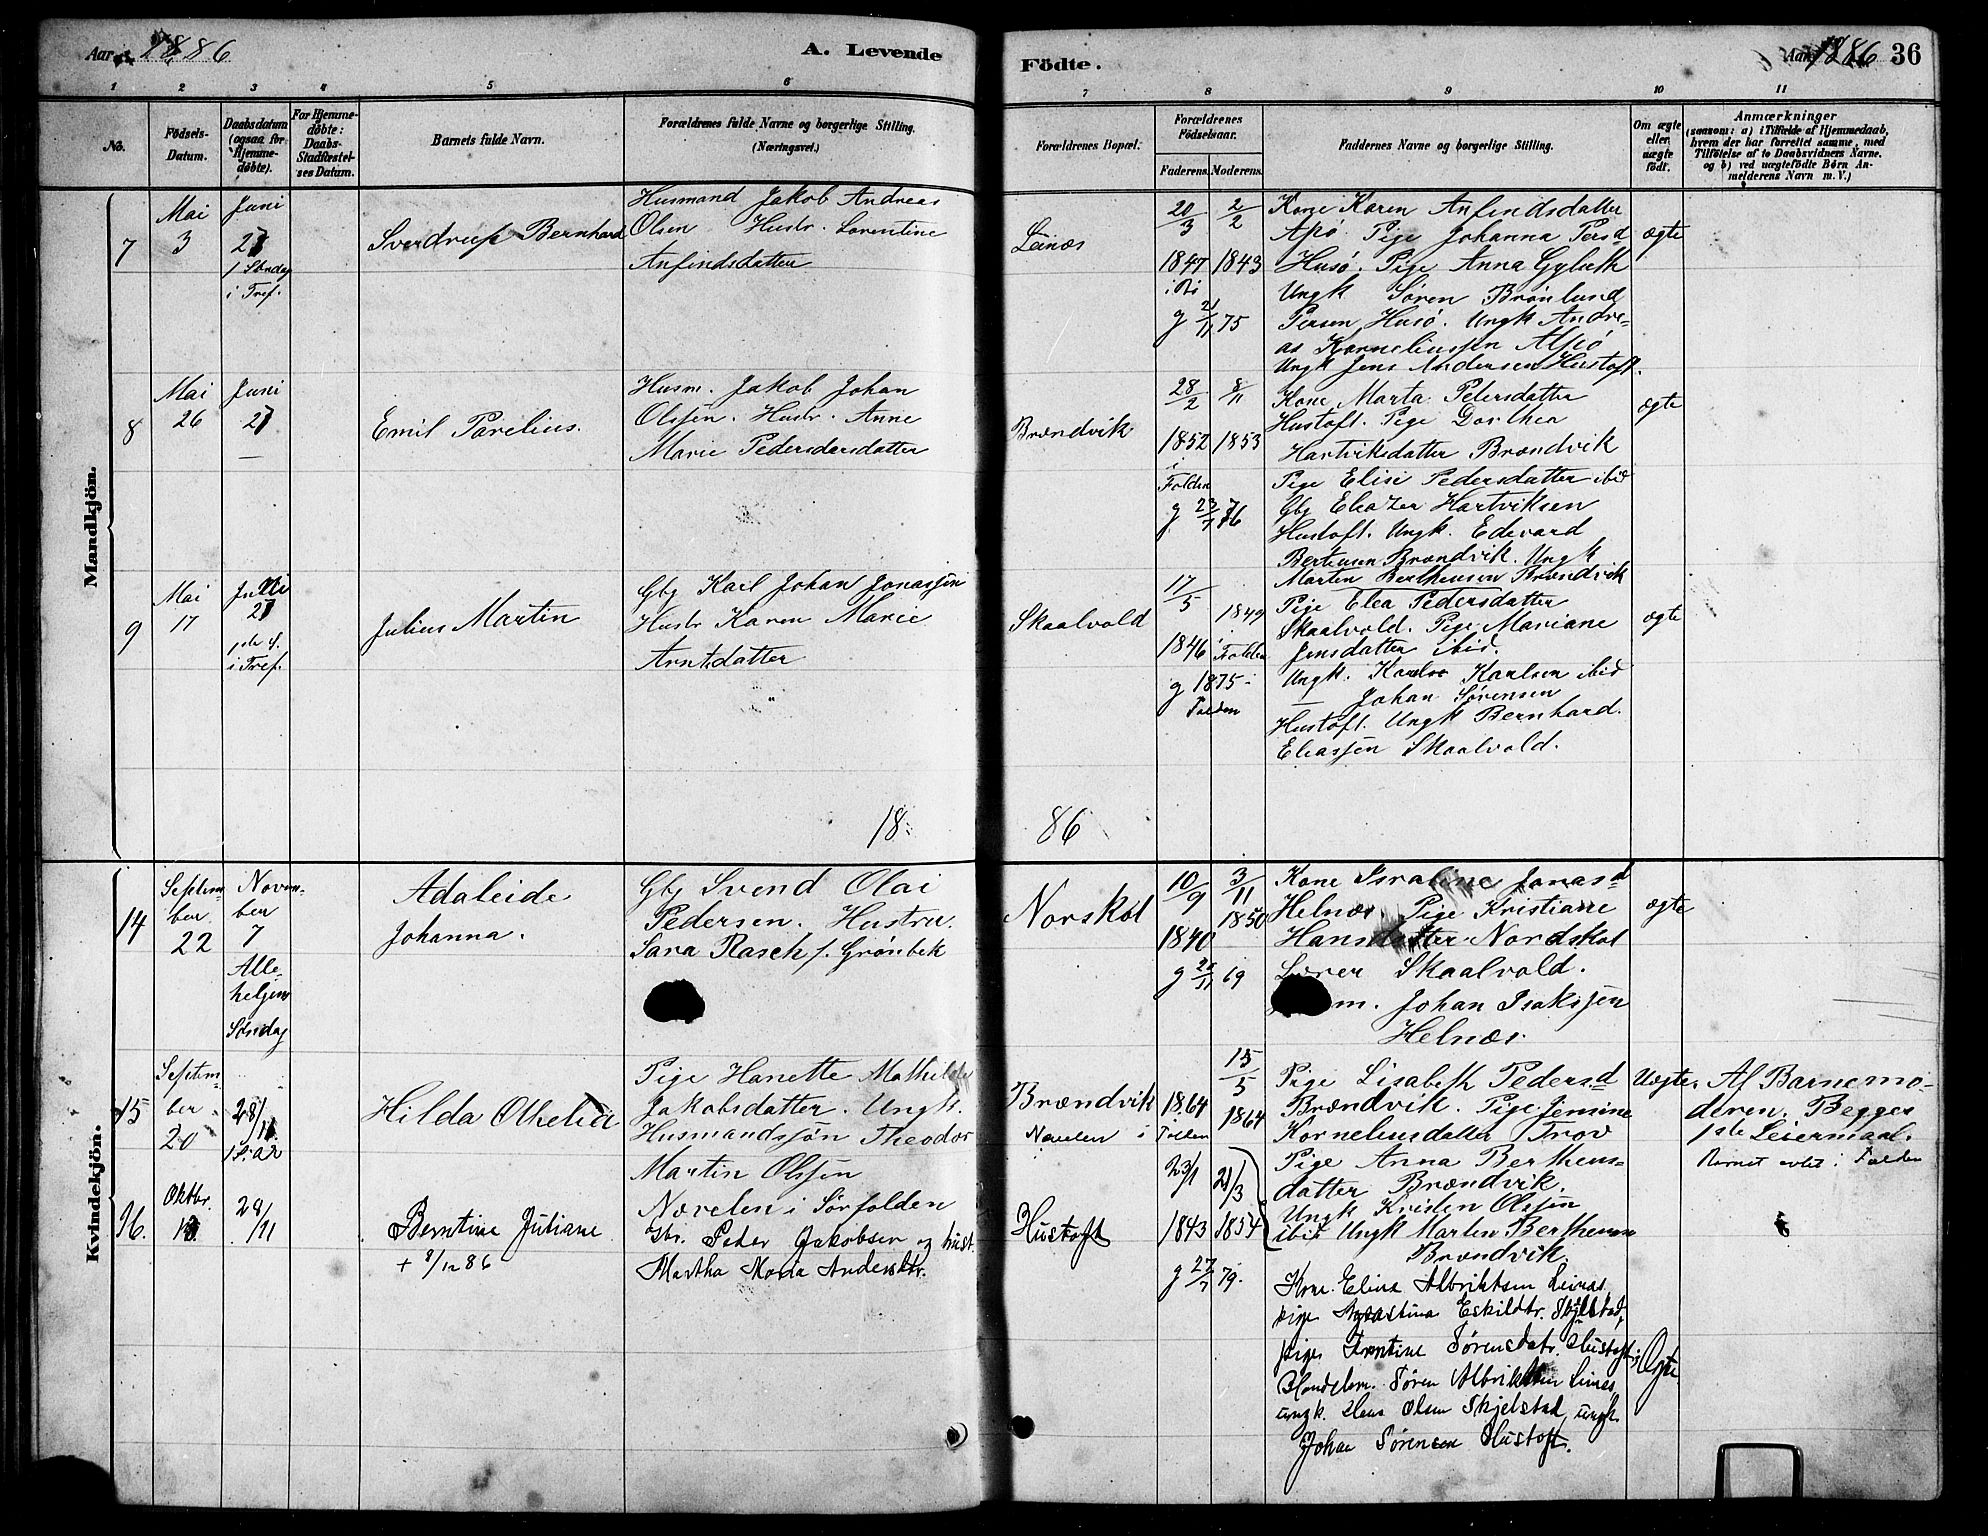 Aar 1886
A. Levende
Födte.
Aar 1886 36
1 2 3 4 5 6 7 8 9 10 11
No.
Födsels-
Datum.
Daabsdatum
(ogsaa for
Hjemme-
döbte).
For Hjemme-
döbte:
Daabs-
Stadfæstel-
ses Datum.
Barnets fulde Navn.
Forældrenes fulde Navne og borgerlige Stilling.
(Næringsvei.)
Forældrenes Bopæl.
Forældrenes
Födselsaar.
Faderens. Moderens.
Faddernes Navne og borgerlige Stilling.
Om ægte
eller
uægte
födt.
Anmærkninger
(saasom: a) i Tilfælde af Hjemmedaab,
hvem der har forrettet samme, med
Tilföielse af to Daabsvidners Navne.
og b) ved uægtefödte Börn An-
melderens Navn m. V.)
Mandkjön.
7
Mai
3
Juni
27
1 Søndag
i Tref.
Sverdrup Bernhard
Husmand Jakob Andreas
Olsen Hustr. Lorentine
Anfindsdatter
Leinæs
20/3
1847
2/2
1843
g 21/11 75
Kone Karen Anfindsdatter
Aspø Pige Johanna Persd
Husø. Pige Anna Gylseth
Ungk Søren Brønlund
Persen Husø. Ungk Andre-
as Korneliussen Alsø
Ungk Jens Andersen Hustoft.
ægte
8
Mai
26
Juni
27
—
Emil Parelius.
Husm. Jakob Johan
Olssen. Hustr. Anne
Marie Pedersdersdatter
Brændvik
28/2
1852
i
Folden
8/11
1853
g 23/7 76
Kone Marta Petersdatter
Hustoft. Pige Dorthea
Hartviksdatter Brændvik
Pige Elisi Pedersdatter ibid
Gbj Eleazer Hartviksen
Hustoft. Ungk. Edevard
Berteusen Brændvik. Ungk
Martin Bertheusen Brændvik
ægte
9
Mai
17
Juni
27
1ste S.
i Tref.
Julius Martin
Gbj Karl Johan Jonassen
Hustr Karen Marie
Arntsdatter
Skaalvold
17/5
1846
1849
i
Folden
g 1875 i
Folden
Pige Elea Pedersdatter
Skaalvold. Pige Mariane
Jensdatter ibid.
Ungk. Karlso Karlsen ibid
— Johan Sørensen
Hustoft. Ungk Bernhard.
Eliassen Skaalvold.
ægte
18 86
Kvindekjön.
14
Septem-
ber
22
Novem-
ber
7
Alle-
helgens
Søndag
Adaleide
Johanna.
Gbj Svend Olai
Pedersen. Hustru.
Sara Rasch f. Grønbek
Norskot
10/9
1840
3/11
1850
g 69
Kone Israline Jonasd
Helnæs. Pige Kristiane
Hansdatter Nordskot
Lærer Skaalvold.
m. Johan Isaksen
Helnæs
ægte
15
Septem-
ber
20
28/11
Hilda Othelia
Pige Hanette Mathilde
Jakobsdatter. Ungk.
Husmandssøn Theodor
Martin Olssen
Nævelen i Sørfolden
Brændvik
Nævelen i Folden
1864
15/5
1864
Pige Lisabeth Pedersd
Brændvik. Pige Jensine
Korneliusdatter Trov
Pige Anna Bertheus-
datter Brændvik.
Ungk Kristen Olssen
ibid Ungk Martin Bertheusen
Brændvik
Uægte
Af Barnemo-
deren. Begges
1ste Leiermaal.
Barnet avlet i Folden
16.
Oktbr.
13
28/11
Berntine Juliane
+ 8/12 86
Gbr. Peder Jakobsen og hust.
Martha Maria Andersdtr.
Hustoft
23/1
1843
21/3
1854
g 27/7 79.
Kone Elina Albriktsen Leinæs
pige Eskildtr. Skjelstad,
pige Berntine Sørensdatr. Hustoft;
Handelsm. Søren Albriktsen Leinæs,
ungk. Hans Olsen Skjelstad, ungk.
Johan Sørensen Hustoft.
Ægte